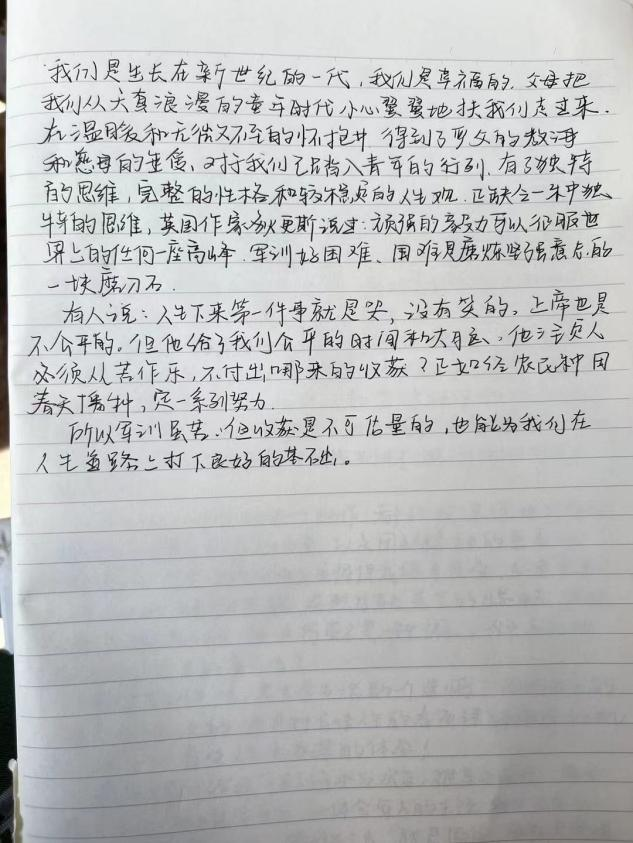 我们是生长在新世纪的一代，我们是幸福的。父母把
我们从天真浪漫的童年时代小心翼翼地扶我们走过来。
在温暖和无微不至的怀抱中得到了严父的教诲
和慈母的重信。对于我们已踏入青年的行列。有了独特
的思维，完整的性格和较稳定的人生观。正缺合一种独
特的思维，英国作家狄更斯说过：顽强的毅力可以征服世
界上的任何一座高峰。军训好困难、困难是磨炼坚强意志的
一块磨刀石。
有人说：人生下来第一件事就是哭，没有笑的。上帝也是
不公平的。但他给了我们公平的时间和大脑。他注定人
必须从苦作乐，不付出哪来的收获？正如经农民种田
春天播种，定一系列努力
所以军训虽苦。但收获是不可估量的，也能为我们在
人生道路上打下良好的基础。